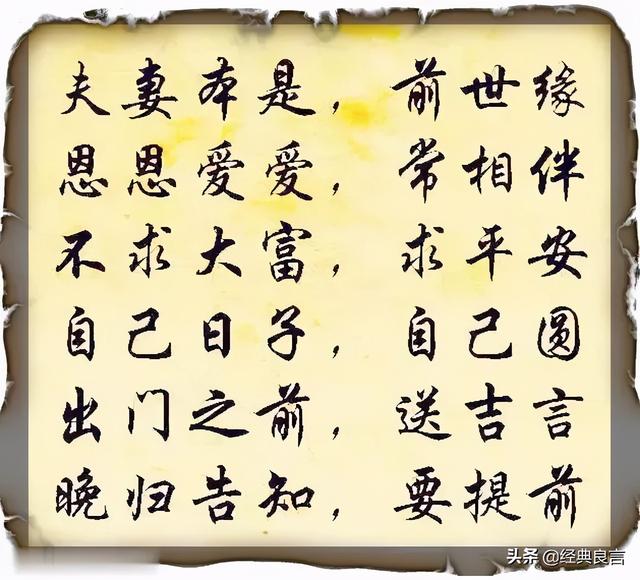 夫妻本是，前世缘
恩恩爱爱，常相伴
不求大富，求平安
自己日子，自己圆
出门之前，送吉言
晚归告知，要提前
头条 @经典良言